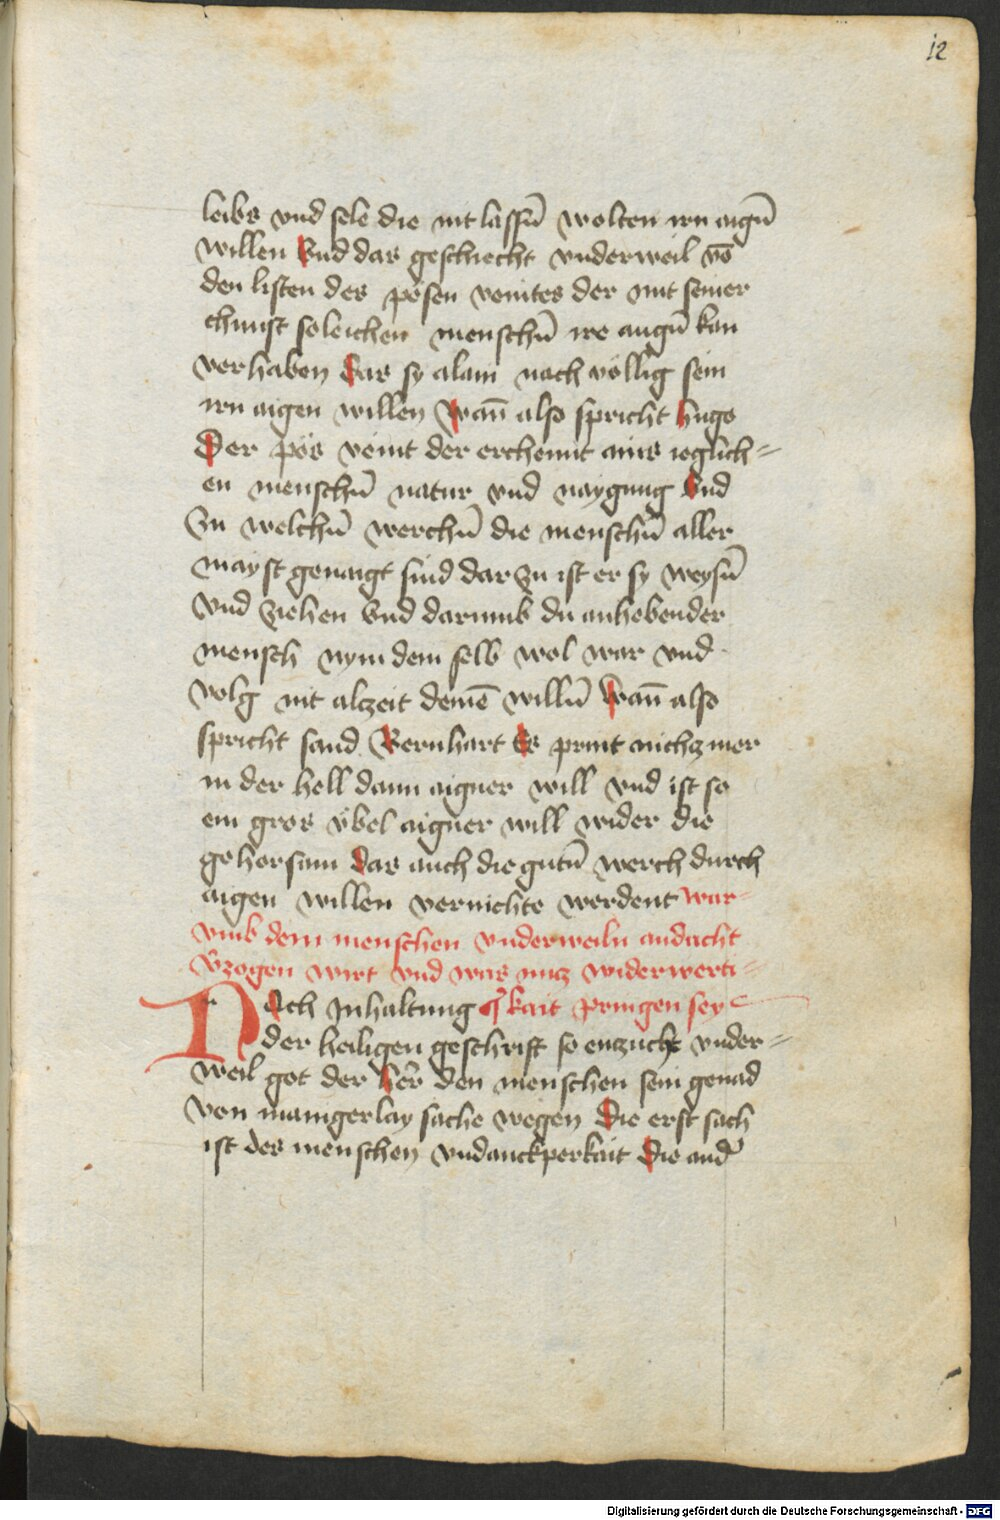 12
leibs vnd sele die nit lassn̄ wolten irn aign̄
willen Vnd das geschiecht vnderweil vō
den listen des pösen veintes der mit seiner
chunst soleichen menschn̄ ire augn̄ kan
verhaben Das sy alain nach völlig sein
irn aigen willen Wan̄ also spricht hugo
Der pös veint der erchennt ains ieglich=
en menschn̄ natur vnd naygung Vnd
Zu welchn̄ werchn̄ die menschn̄ aller
mayst genaigt sind dar zu ist er sy weysn̄
vnd ziehen Vnd darumb du anhebender
mensch nym dem selb wol war vnd
volg nit alzeit deinē willn̄ Wan̄ also
spricht sand Bernhart Es print nichz mer
in der hell dann aigner will vnd ist so
ein gros vbel aigner will wider die
gehorsam Das auch die gutn̄ werch durch
aigen willen vernichte werdent war=
vmb dem menschen vnderweiln andacht
v̄zogen wirt vnd was nucz widerwerti=
Nach Inhaltung kait pringen sey
der heiligen geschrift so enzucht vnder=
weil got der her̄ den menschen sein genad
von manigerlay sache wegen Die erst sach
ist des menschen vndanckperkait Die and̄
Digitalisierung gefördert durch die Deutsche Forschungsgemeinschaft - DFG